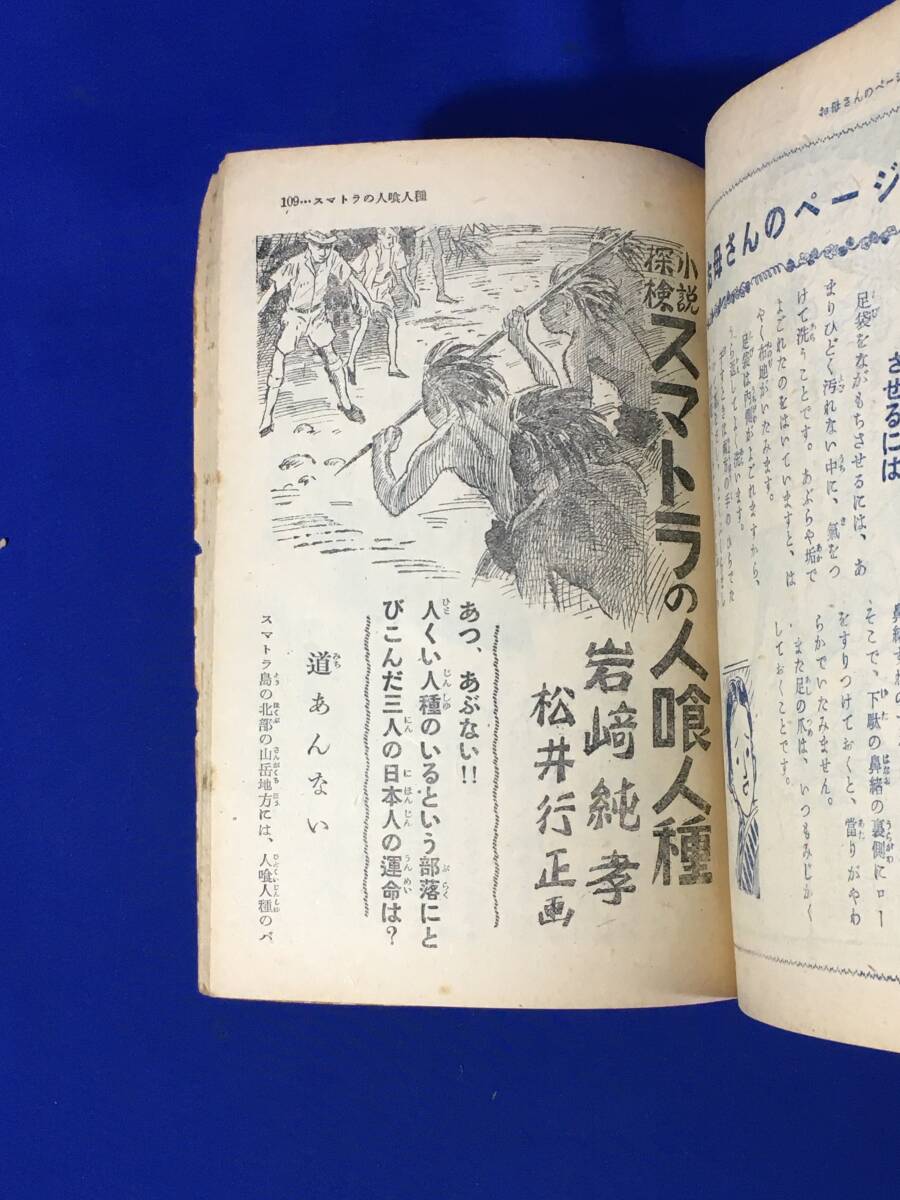 109…スマトラの人喰人種
探検小説
スマトラの人喰人種
岩﨑純孝
松井行正画
あつ、あぶない!!
人くい人種のいるという部落にと
びこんだ三人の日本人の運命は？
道あんない
スマトラ島の北部の山岳地方には、人喰人種のバ
お母さんのページ
お母さんのページ
させるには
足袋をながもちさせるには、あ
まりひどく汚れない中に、氣をつ
けて洗うことです。あぶらや垢で
よごれたのをはいていますと、は
やく布地がいたみます。
足袋は内側がよごれますから、
うら返してよく洗います。
そこで、下駄の鼻緒の裏側にロー
をすりつけておくと、當りがやわ
らかでいたみません。
また足の爪は、いつもみじかく
しておくことです。